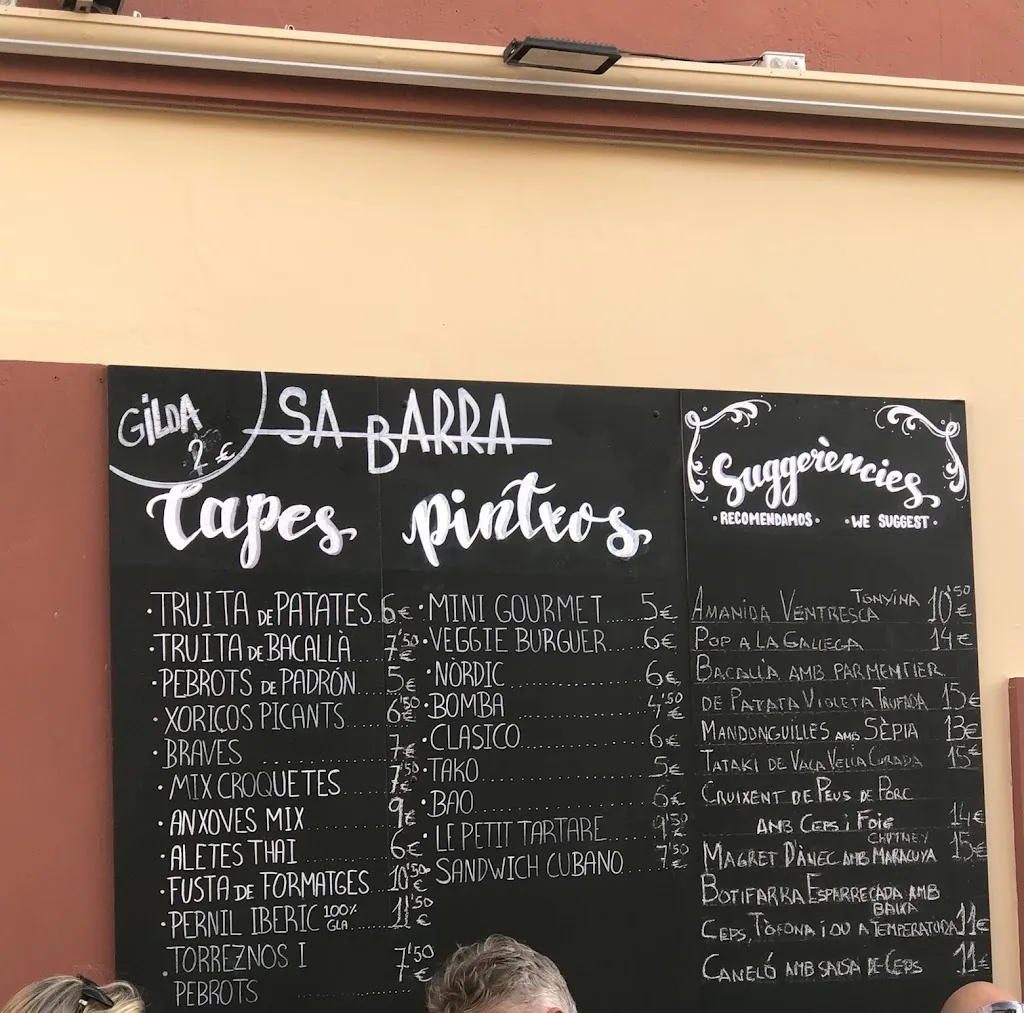 GILDA
2€
SA BARRA
Tapes
·TRUITA DE PATATES 6€
·TRUITA DE BACALLÀ 7'50€
·PEBROTS DE PADRÓN 5€
·XORIÇOS PICANTS 6'50€
·BRAVES 7€
·MIX CROQUETES 7'50€
·ANXOVES MIX 9€
·ALETES THAI 6€
·FUSTA DE FORMATGES 10'50€
·PERNIL IBERIC 100% GLA. 11'50€
·TORREZNOS I 7'50€
PEBROTS
pintxos
·MINI GOURMET 5€
·VEGGIE BURGUER 6€
·NÒRDIC 6€
·BOMBA 4'50€
·CLASICO 6€
·TAKO 5€
·BAO 6€
·LE PETIT TARTARE 9'50€
·SANDWICH CUBANO 7'50€
Suggerències
·RECOMENDAMOS· ·WE SUGGEST·
AMANIDA VENTRESCA TONYINA 10'50€
POP A LA GALLEGA 14€
BACALLÀ AMB PARMENTIER
DE PATATA VIOLETA TRUFADA 15€
MANDONGUILLES AMB SÈPIA 13€
TATAKI DE VACA VELLA CURADA 15€
CRUIXENT DE PEUS DE PORC
AMB CEPS I FOIE 14€
MAGRET D'ÀNEC AMB CHUTNEY MARACUYA 15€
BOTIFARRA ESPARRECADA AMB
CEPS, TÒFONA I OU A BAIXA TEMPERATURA 11€
CANELÓ AMB SALSA DE CEPS 11€